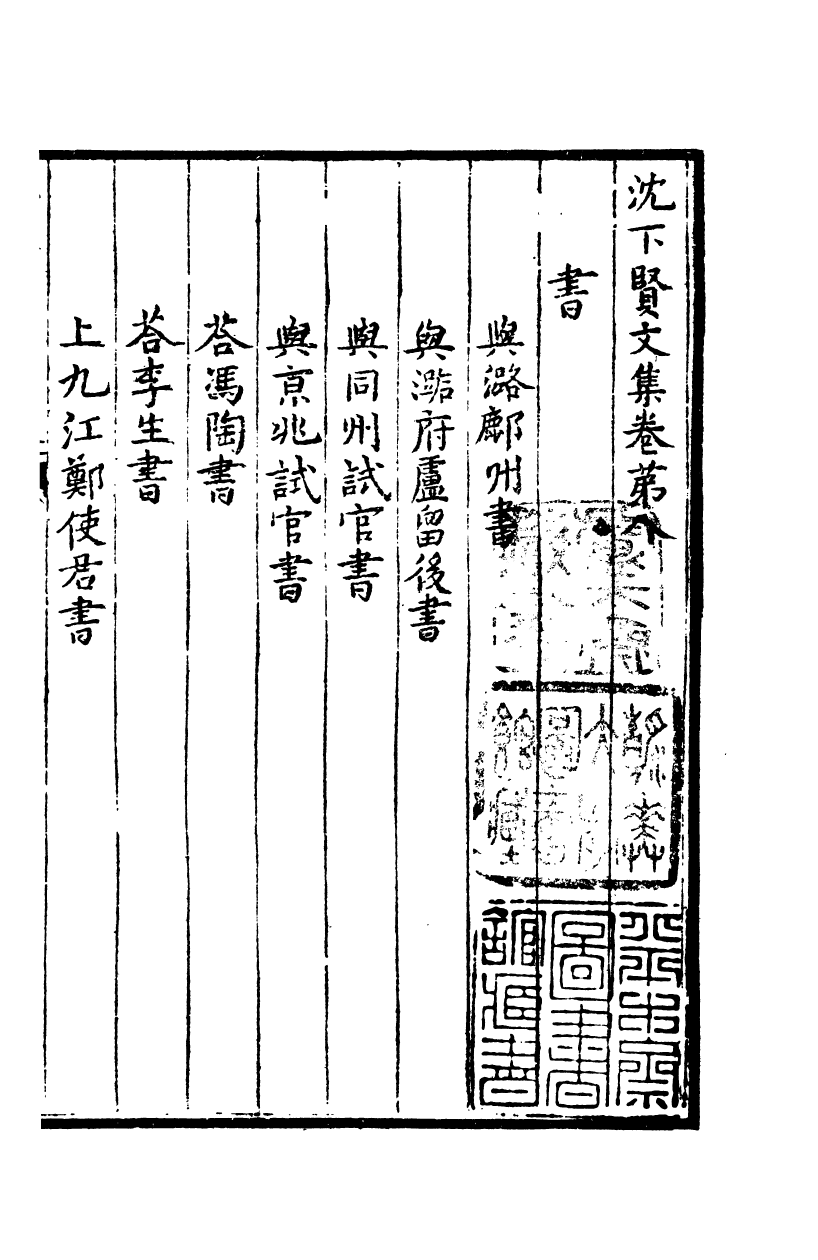 沈下賢文集卷第八
書
與潞鄜州書
與潞府盧留後書
與同州試官書
與京兆試官書
荅馮陶書
荅李生書
上九江鄭使君書
圖書